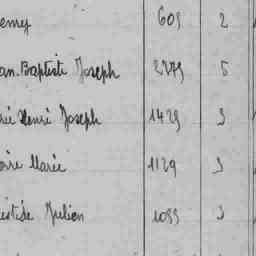 emy 605 2
an. Baptiste Joseph 2275 5
rie Henri Joseph 1425 3
oire Marie 1129 3
istide Julien 1055 3